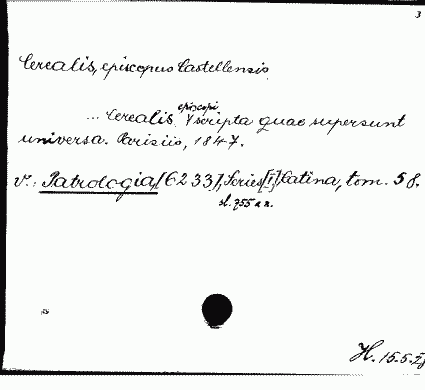 3
Cerealis, episcopus Castellensis
... Cerealis episcopi scripta quae supersunt
universa. Parisiis, 1847.
v.: Patrologia, [6233], Series [I] Latina, tom. 58.
H. 15.5.